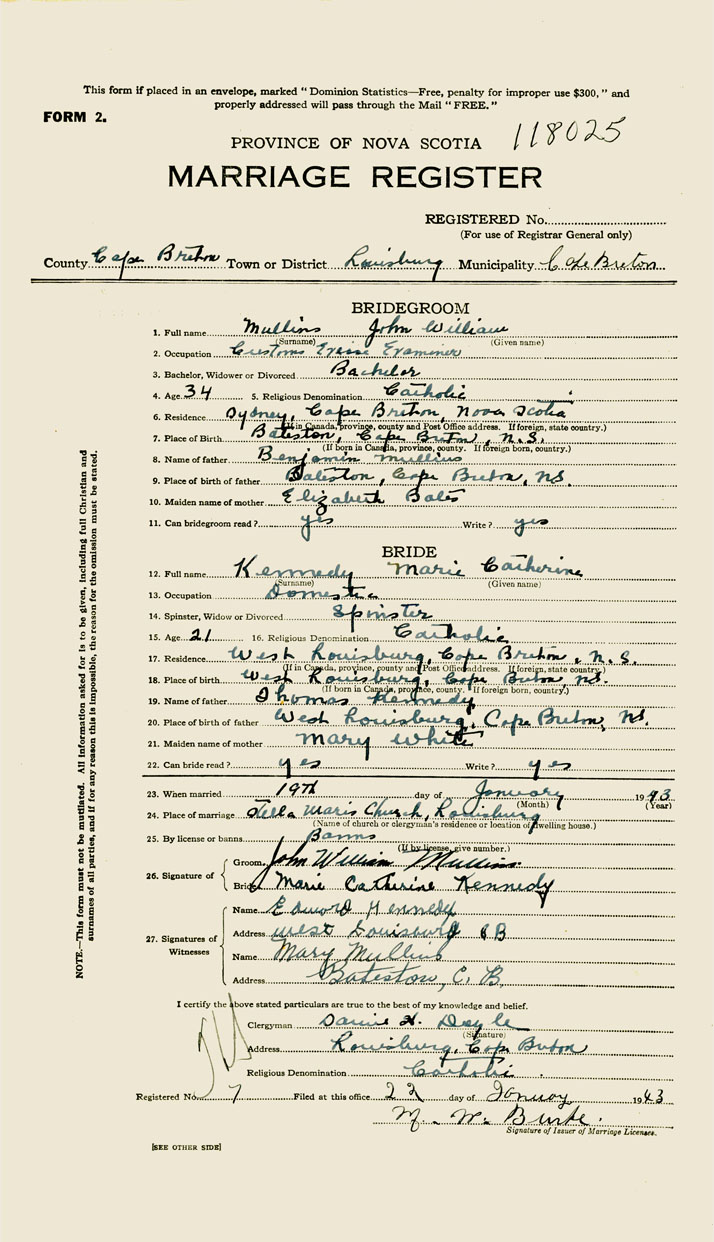 This form if placed in an envelope, marked "Dominion Statistics—Free, penalty for improper use $300," and
properly addressed will pass through the Mail "FREE."
FORM 2.
118025
PROVINCE OF NOVA SCOTIA
MARRIAGE REGISTER
REGISTERED No.
(For use of Registrar General only)
County Cape Breton Town or District Louisburg Municipality Cape Breton
BRIDEGROOM
1. Full name Mullins John William
(Surname) (Given name)
2. Occupation Customs Excise Examiner
3. Bachelor, Widower or Divorced Bachelor
4. Age 34 5. Religious Denomination Catholic
6. Residence Sydney, Cape Breton, Nova Scotia
(If in Canada, province, county and Post Office address. If foreign, state country.)
7. Place of Birth Bateston, Cape Breton, N.S.
(If born in Canada, province, county. If foreign born, country.)
8. Name of father Benjamin Mullins
9. Place of birth of father Bateston, Cape Breton, N.S.
10. Maiden name of mother Elizabeth Bates
11. Can bridegroom read? yes Write? yes
BRIDE
12. Full name Kennedy Marie Catherine
(Surname) (Given name)
13. Occupation Domestic
14. Spinster, Widow or Divorced Spinster
15. Age 21 16. Religious Denomination Catholic
17. Residence West Louisburg, Cape Breton, N.S.
(If in Canada, province, county and Post Office address. If foreign, state country.)
18. Place of birth West Louisburg, Cape Breton, N.S.
(If born in Canada, province, county. If foreign born, country.)
19. Name of father Thomas Kennedy
20. Place of birth of father West Louisburg, Cape Breton, N.S.
21. Maiden name of mother Mary White
22. Can bride read? yes Write? yes
23. When married 19th day of January 1943
(Month) (Year)
24. Place of marriage Stella Maris Church, Louisburg
(Name of church or clergyman's residence or location of dwelling house.)
25. By license or banns Banns
(If by license, give number.)
26. Signature of
Groom John William Mullins
Bride Marie Catherine Kennedy
27. Signatures of Witnesses
Name Edward Kennedy
Address West Louisburg CB
Name Mary Mullins
Address Bateston, C. B.
I certify the above stated particulars are true to the best of my knowledge and belief.
Clergyman H. Doyle
(Signature)
Address Louisburg, Cape Breton
Religious Denomination Catholic
Registered No. 7 Filed at this office 22 day of January 1943
M. W. Burke
Signature of Issuer of Marriage Licenses.
[SEE OTHER SIDE]
NOTE.—This form must not be mutilated. All information asked for is to be given, including full Christian and
surnames of all parties, and if for any reason this is impossible, the reason for the omission must be stated.